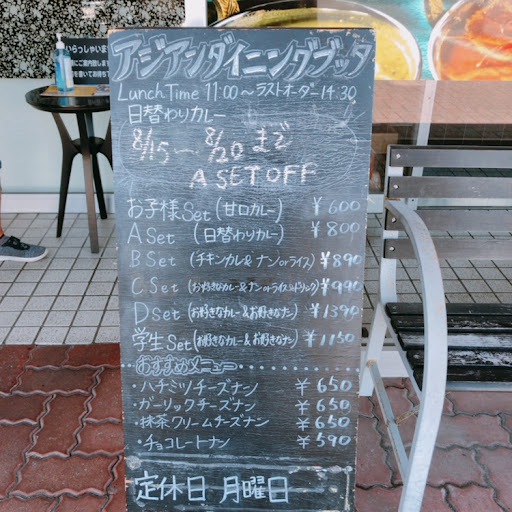 いらっしゃいませ
アジアンダイニングブッタ
Lunch Time 11:00～ラストオーダー14:30
日替わりカレー
8/15～8/20まで
A SET OFF
お子様Set (甘口カレー) ¥600
A Set (日替わりカレー) ¥800
B Set (チキンカレー & ナンorライス) ¥890
C Set (お好きなカレー&ナンorライス&ドリンク) ¥990
D Set (お好きなカレー&お好きなナン) ¥1390
学生Set (お好きなカレー&お好きなナン) ¥1150
おすすめメニュー
・ハチミツチーズナン ¥650
・ガーリックチーズナン ¥650
・抹茶クリームチーズナン ¥650
・チョコレートナン ¥590
定休日 月曜日